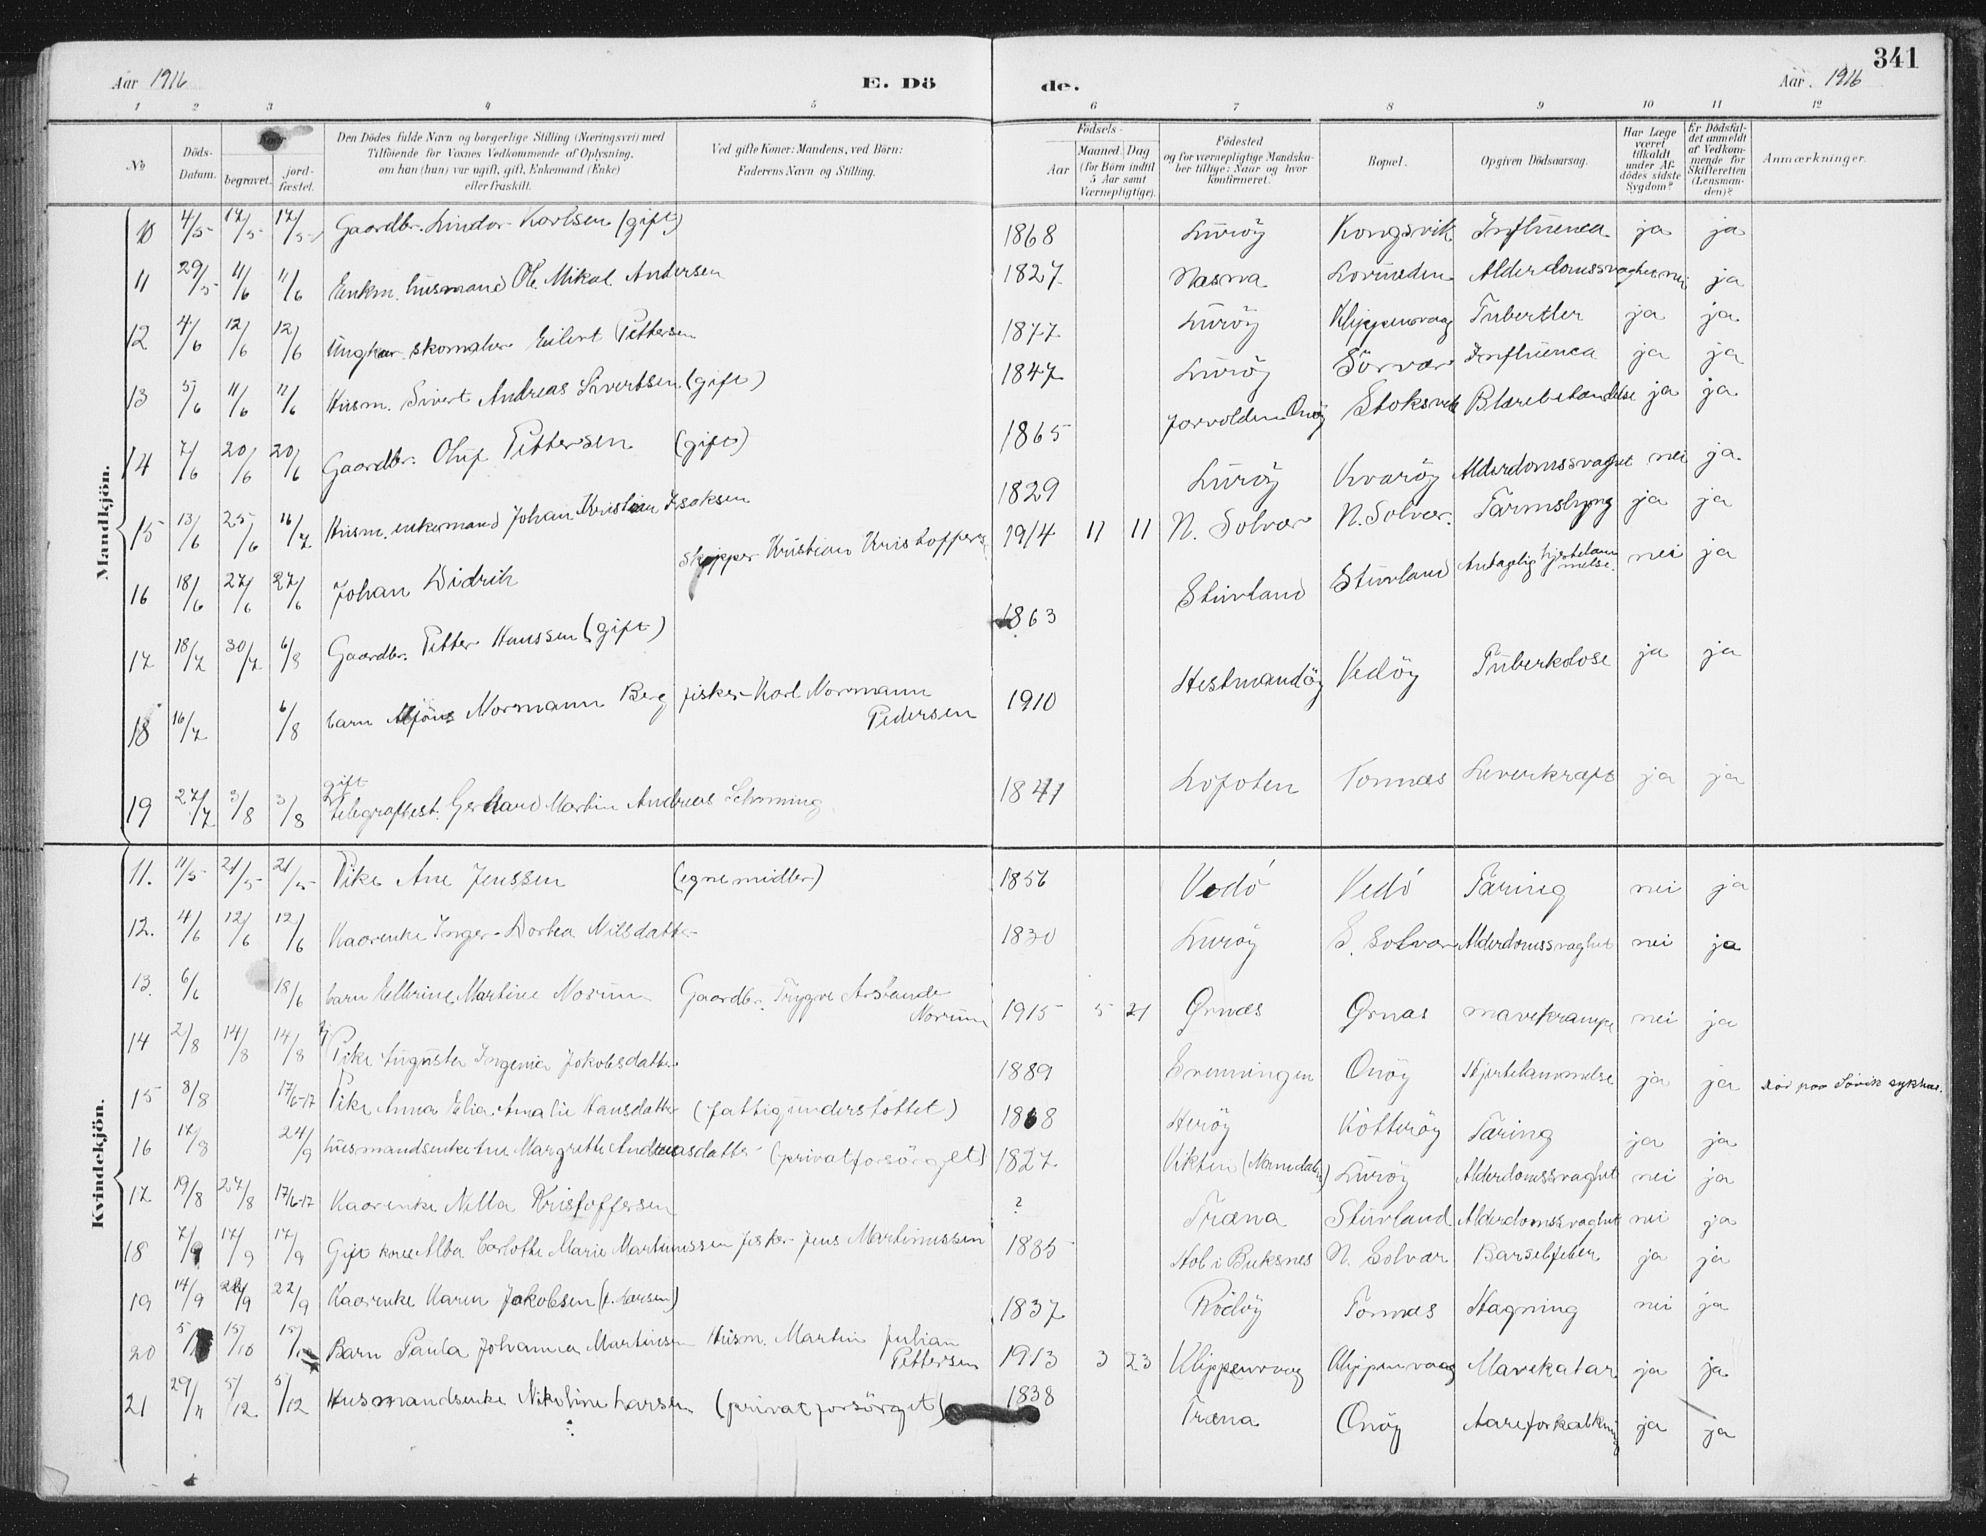 341
Aar 1916 E. Dö de. Aar 1916
1 2 3 4 5 6 7 8 9 10 11 12
No
Döds-Datum.
begravet.
jord-fæstet.
Den Dödes fulde Navn og borgerlige Stilling (Næringsvei) med
Tilföiende for Voxnes Vedkommende af Oplysning,
om han (hun) var ugift, gift, Enkemand (Enke)
eller fraskilt.
Ved gifte Koner: Mandens, ved Börn:
Faderens Navn og Stilling.
Födsels-
Aar
Maaned. Dag
(for Börn indtil
5 Aar samt
Værnepligtige).
Födested
og for værnepligtige Mandska-
ber tillige: Naar og hvor
konfirmeret.
Bopæl.
Opgiven Dödsaarsag.
Har Læge
været
tilkaldt
under Af-
dödes sidste
Sygdom?
Er Dödsfal-
det anmeldt
af Vedkom-
mende for
Skifteretten
(Lensman-
den)?
Anmærkninger.
Mandkjön.
10 4/5 17/5 17/5 Gaardbr. Lindor Karlsen (gift) 1868 Luröy Kongsvik Influenca ja ja
11 29/5 11/6 11/6 Enkm. husmand Ole Mikal Andersen 1827 Næsna Lovunden Alderdomssvaghet nei ja
12 4/6 12/6 12/6 Ungkar skomaker Eilert Pettersen 1877 Luröy Klippenvaag Tuberkler ja ja
13 5/6 11/6 11/6 Husm. Sivert Andreas Sivertsen (gift) 1847 Luröy Sörvær Influenca ja ja
14 7/6 20/6 20/6 Gaardbr. Oluf Pettersen (gift) 1865 Jorvolden Onöy Stoksvik Blærebetændelse ja ja
15 13/6 25/6 16/7 Husm. enkemand Johan Kristian Isaksen 1829 Luröy Kvaröy Alderdomssvaghet nei ja.
16 18/6 27/6 27/6 Johan Didrik skipper Kristian Kristoffersen 1914 11 11 N. Solvær N. Solvær. Tarmslyng ja ja
17 18/7 30/7 6/8 Gaardbr. Petter Hanssen (gift) 1863 Stuvland Stuvland Antagelig hjertelammelse. nei ja
18 16/7 6/8 barn Alfons Normann Berg fisker Karl Normann
Pedersen 1910 Hestmandöy Vedöy Tuberkolose ja ja
gift
19 27/7 3/8 3/8 telegrafbest. Gerhard Martin Andreas Schrøning 1841 Lofoten Tonnæs Leverkræft ja ja
Kvindekjön.
11. 11/5 21/5 21/5 Pike Ane Jenssen (egne midler) 1856 Vedö Vedö Tæring nei ja
12. 4/6 12/6 12/6 Kaarenke Inger Dorhea Nilsdatter 1830 Luröy S. Solvær Alderdomssvaghet nei ja
13. 6/6 18/6 barn Ellrine Martine Norum Gaardbr. Trygve
Norum 1915 5 21 Ørnæs Ørnæs mavekrampe nei ja
14 2/8 14/8 14/8 Pike Augusta Ingenia Jakobsdatter 1889 Onöy Hjertelammelse ja ja
15 8/8 17/6-17 Pike Anna Elia Amalie Hansdatter (fattigunderstöttet) 1868 Heröy Kötteröy Tæring ja ja
16 17/8 24/9 husmandsenke Ane Margrethe Andreasdatter (privat forsörget) 1827 Vikten (Namdalen) Luröy Alderdomssvaghet nei ja
17 19/8 27/8 17/6-17 Kaarenke Nilla Kristoffersen ? Træna Stuvland Alderdomssvaghet nei ja
18 7/9 17/9 17/9 Gift kone Alba Carlotte Marie Martinussen fisker Jens Martinussen 1885 Hol i Buksnes N. Solvær Barselfeber ja ja
19 14/9 22/9 22/9 Kaarenke Karen Jakobsen (f. Larsen) 1837 Rödöy Tonnæs Hagning nei ja
20 5/ 15/10 15/ Barn Paula Johanna Martinsen Husm. Martin Julian
Pettersen 1913 3 23 Klippenvaag Klippenvaag Mavekatar ja ja
21 29/11 5/12 5/12 Husmandsenke Nikoline Larsen (privat forsörget) 1838 Træna Onöy Aareforkalkning ja ja